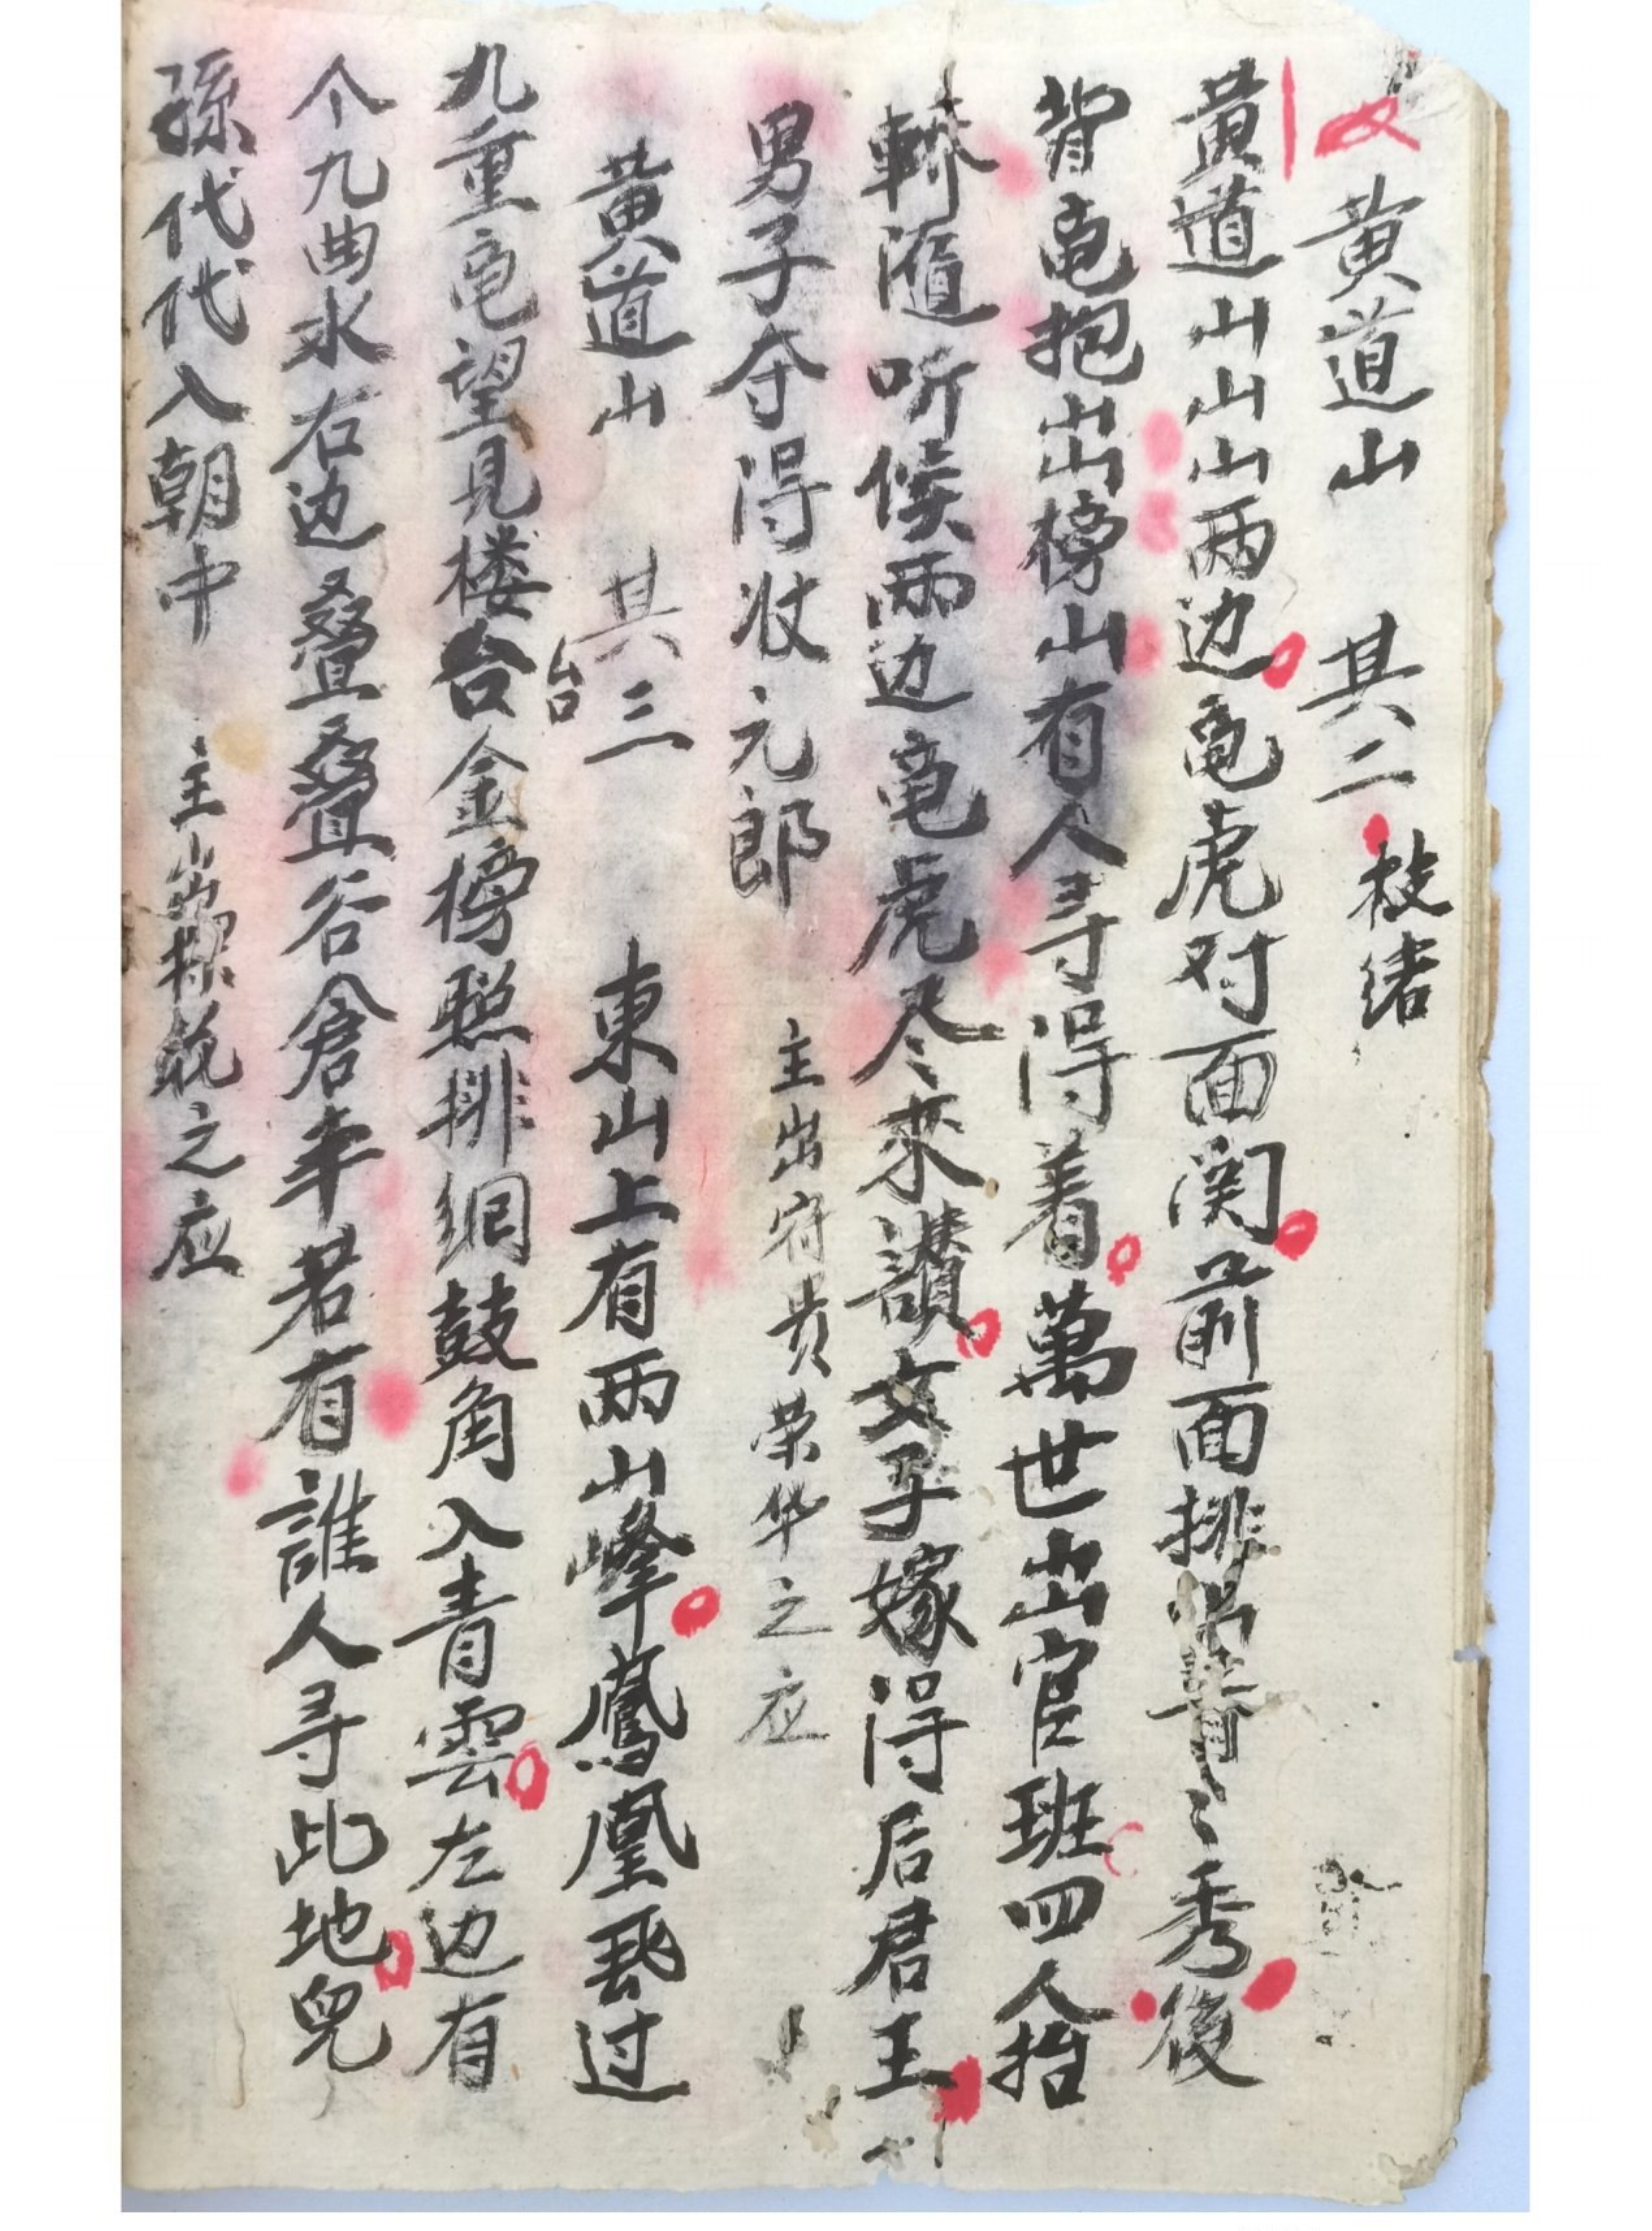 黄道山 其二 枝绪
黄道山山山两边黾虎对面関前面排出菁々秀後
背黾抱出榜山有人寻得着萬世出官班四人抬
轎隨听候两边黾虎尽來讃女子嫁得后君王
男子夺得狀元郎 主出符贵荣华之应
黄道山 其三 東山上有两山峰鳳凰飛过
九重黾望見楼台金榜照排網鼓角入青雲左边有
台
个九曲水右边叠叠谷倉丰若有誰人寻此地兒
孫代代入朝中 主出之应